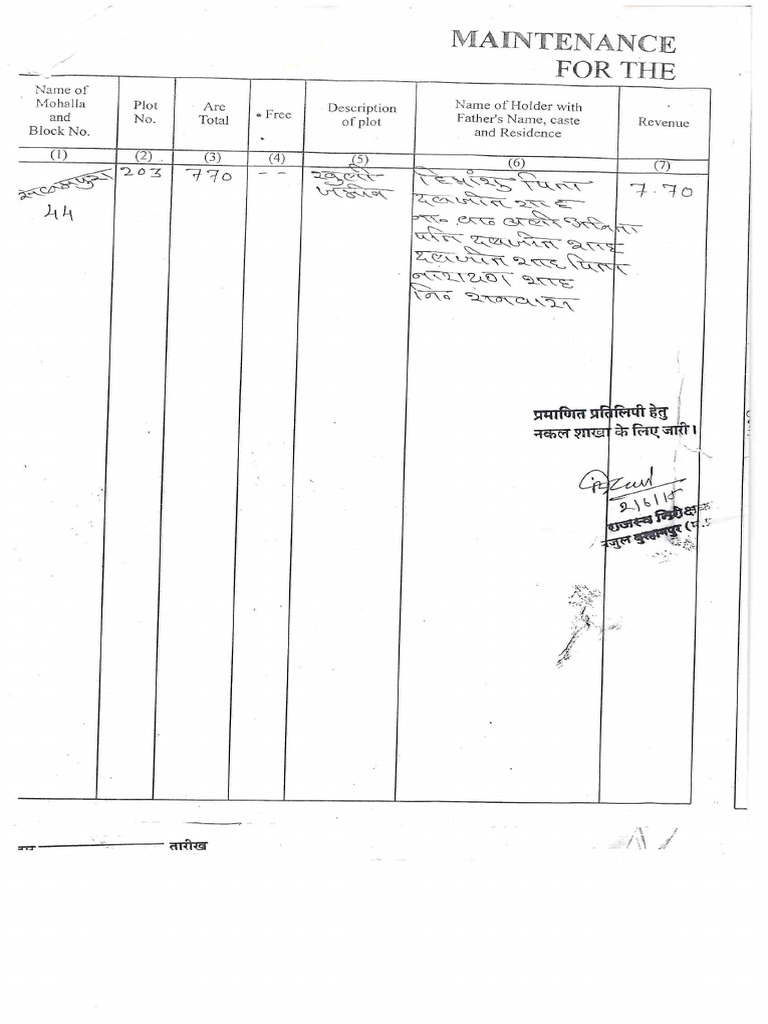 MAINTENANCE
FOR THE
Name of Mohalla and Block No.
Plot No.
Are Total
Free
Description of plot
Name of Holder with Father's Name, caste and Residence
Revenue
(1) (2) (3) (4) (5) (6) (7)
44
203
770
--
खुली
जमीन
हिमांशु पिता
दलजीत शाह
ना० बा० वली
पति दलजीत शाह
दलजीत शाह पिता
नारायण शाह
नि०
7.70
प्रमाणित प्रतिलिपी हेतु
नकल शाखा के लिए जारी।
2/6/15
राजस्व निरीक्षक
नजुल बुरहानपुर
तारीख